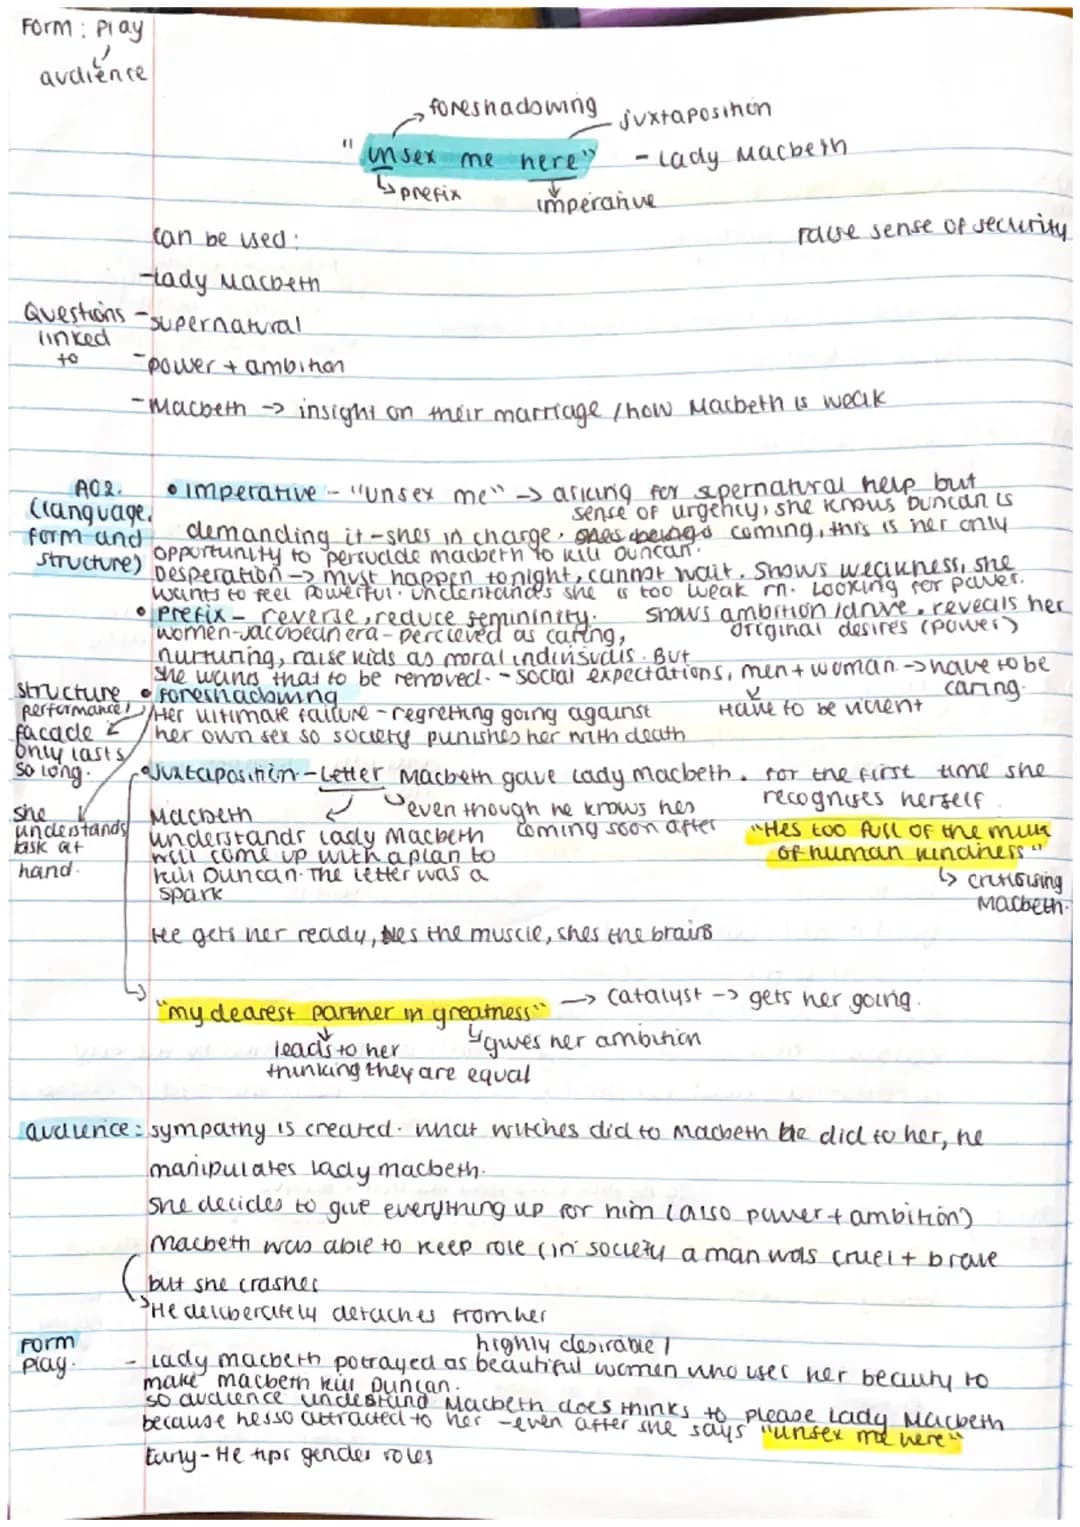 Form: Play
audience
foreshadowing
juxtaposition
"unsex me here" - Lady Macbeth
prefix
imperative
false sense of security
Can be used:
-Lady Macbeth
Questions linked to
-supernatural
-power + ambition
-Macbeth -> insight on their marriage / how Macbeth is weak
AO2.
(language, form and structure)
• imperative - "unsex me" -> asking for supernatural help but
sense of urgency, she knows Duncan is
demanding it - shes in charge. coming, this is her only
opportunity to persuade macbeth to kill Duncan.
Desperation -> must happen tonight, cannot wait. Shows weakness, she
wants to feel powerful. understands she is too weak rn. Looking for power.
• prefix - reverse, reduce femininity. shows ambition / drive. reveals her
women-Jacobean era - percieved as caring, original desires (power)
nurturing, raise kids as moral
But
she wants that to be removed. - social expectations, men + woman -> have to be
caring.
have to be violent
structure
performance /
facade
only lasts
so long.
• foreshadowing
Her ultimate failure - regretting going against
her own sex so society punishes her with death
• Juxtaposition - Letter Macbeth gave Lady macbeth. For the first time she
recognises herself
she
understands
task at
hand.
Macbeth
understands Lady Macbeth
will come up with a plan to
kill Duncan. The letter was a
spark
even though he knows hes
coming soon after
"Hes too full of the milk
of human kindness"
criticising
Macbeth.
He gets her ready, hes the muscle, shes the brains
"my dearest partner in greatness" -> catalyst -> gets her going.
leads to her
thinking they are equal
gives her ambition
audience: sympathy is created. what witches did to Macbeth he did to her, he
manipulates lady macbeth.
she decides to give everything up for him (also power + ambition)
Macbeth was able to keep role (in society a man was cruel + brave
but she crashes
He deliberately detaches from her
Form
play.
highly desirable /
- Lady macbeth potrayed as beautiful women who uses her beauty to
make macbeth kill Duncan.
so audience understand Macbeth does thinks to please Lady Macbeth
because hes so attracted to her - even after she says "unsex me here"
Early - He tips gender roles